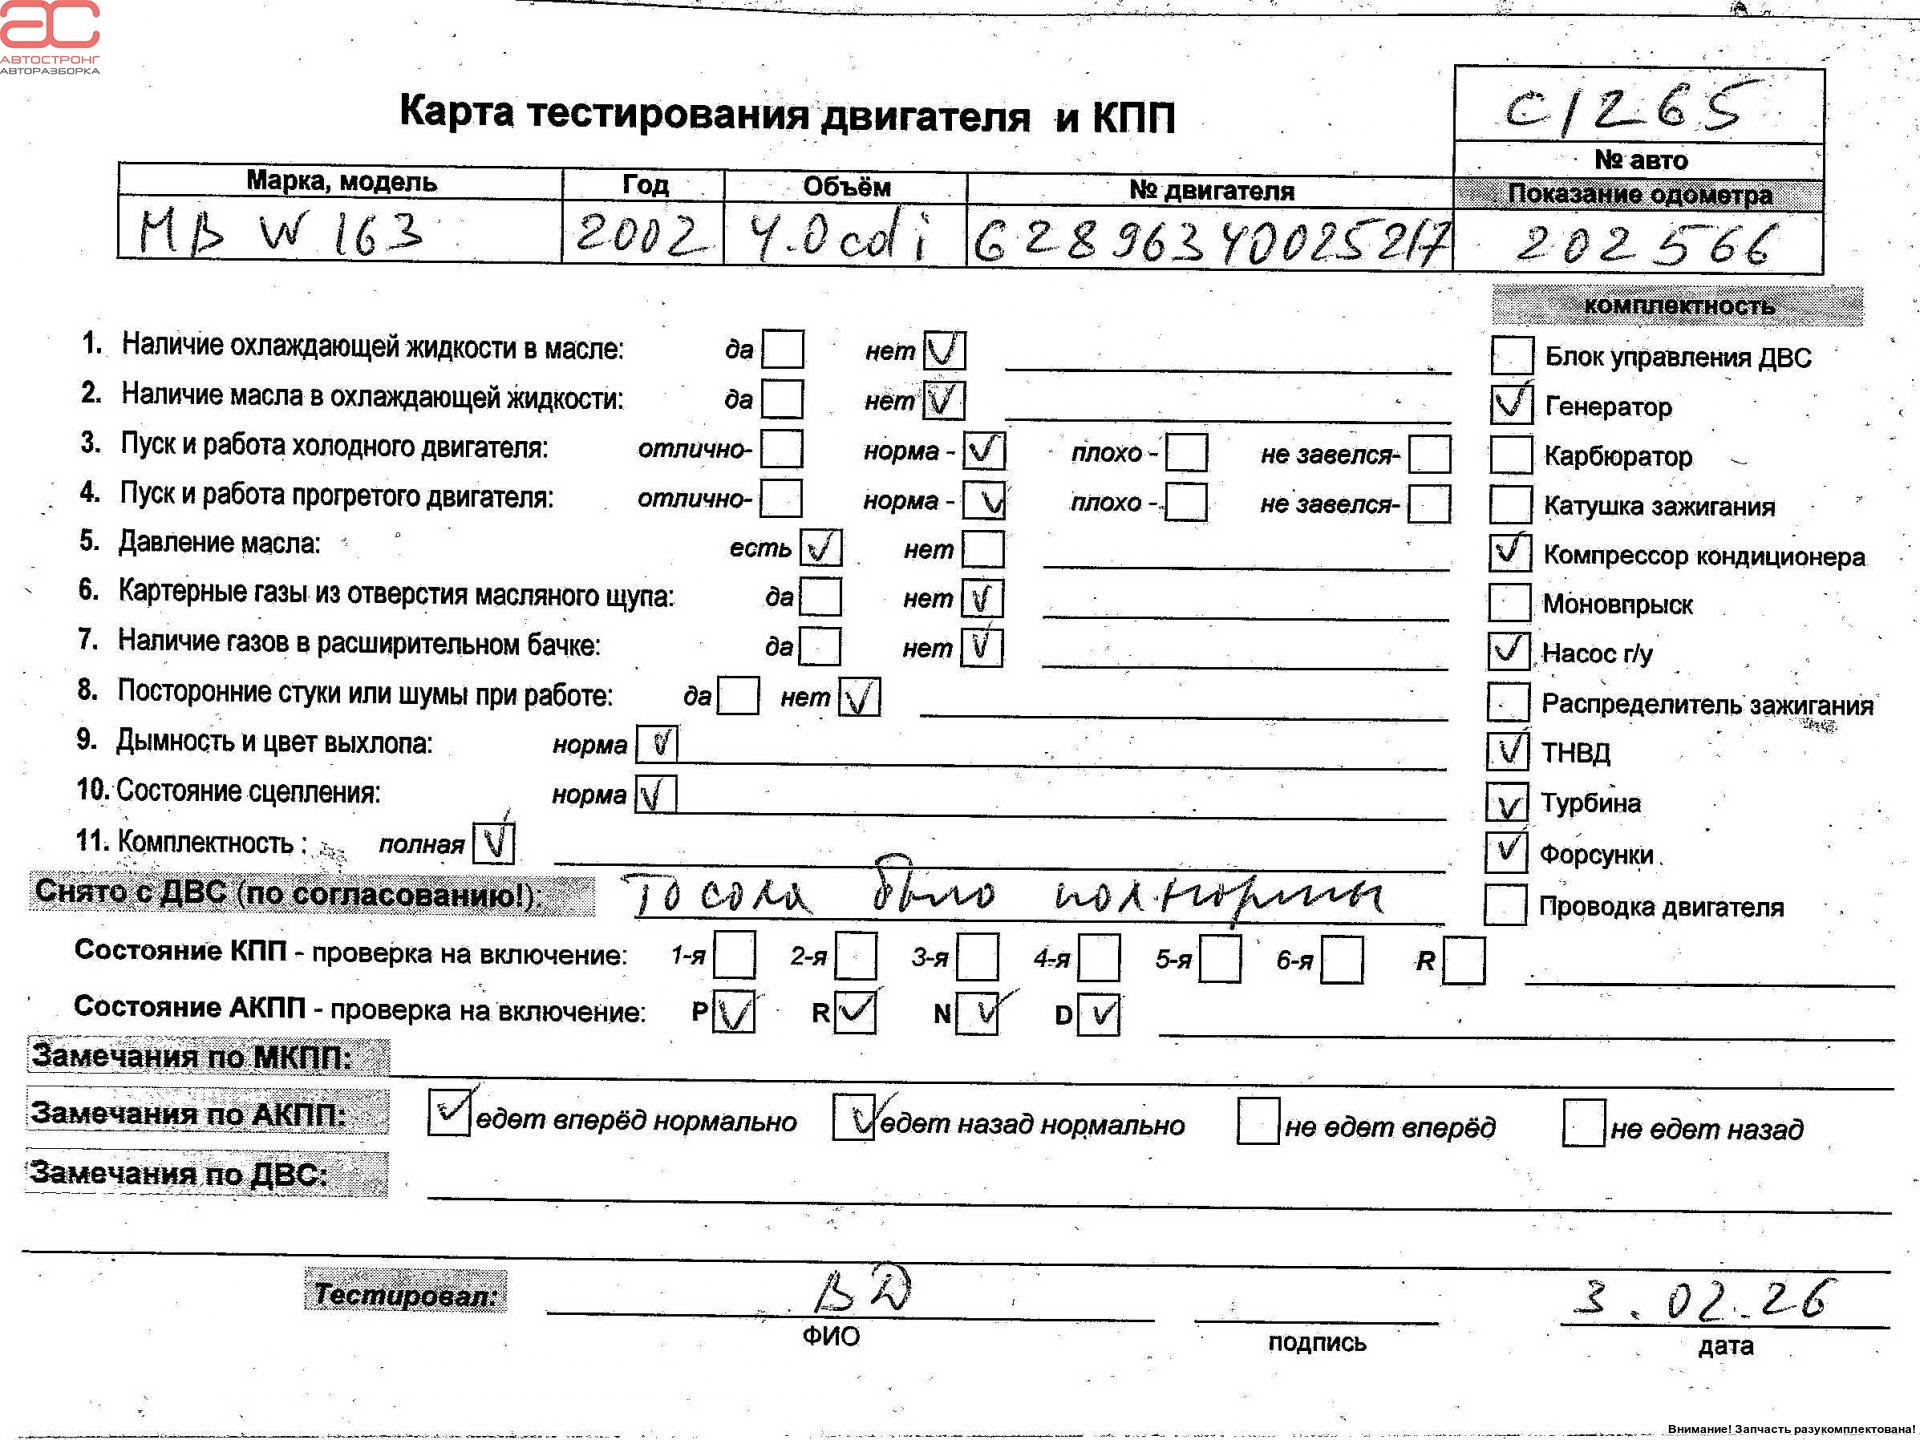 АС
АВТОСТРОНГ
АВТОРАЗБОРКА
Карта тестирования двигателя и КПП
С1265
№ авто
Марка, модель Год Объём № двигателя Показание одометра
MB W 163 2002 4.0cdi 62896340025217 202566
комплектность
1. Наличие охлаждающей жидкости в масле: да нет ✓
Блок управления ДВС
2. Наличие масла в охлаждающей жидкости: да нет ✓
✓ Генератор
3. Пуск и работа холодного двигателя: отлично- норма - ✓ плохо - не завелся-
Карбюратор
4. Пуск и работа прогретого двигателя: отлично- норма - ✓ плохо - не завелся-
Катушка зажигания
5. Давление масла: есть ✓ нет
✓ Компрессор кондиционера
6. Картерные газы из отверстия масляного щупа: да нет ✓
Моновпрыск
7. Наличие газов в расширительном бачке: да нет ✓
✓ Насос г/у
8. Посторонние стуки или шумы при работе: да нет ✓
Распределитель зажигания
9. Дымность и цвет выхлопа: норма ✓
✓ ТНВД
10. Состояние сцепления: норма ✓
✓ Турбина
11. Комплектность : полная ✓
✓ Форсунки
Снято с ДВС (по согласованию!): Тосола было пол.нормы
Проводка двигателя
Состояние КПП - проверка на включение: 1-я 2-я 3-я 4-я 5-я 6-я R
Состояние АКПП - проверка на включение: P ✓ R ✓ N ✓ D ✓
Замечания по МКПП:
Замечания по АКПП: ✓ едет вперёд нормально ✓ едет назад нормально не едет вперёд не едет назад
Замечания по ДВС:
Тестировал: ВД 3.02.26
ФИО подпись дата
Внимание! Запчасть разукомплектована!